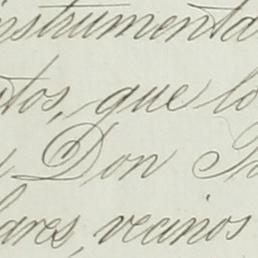 instrumenta
tos, que lo
Don
lares, vecinos